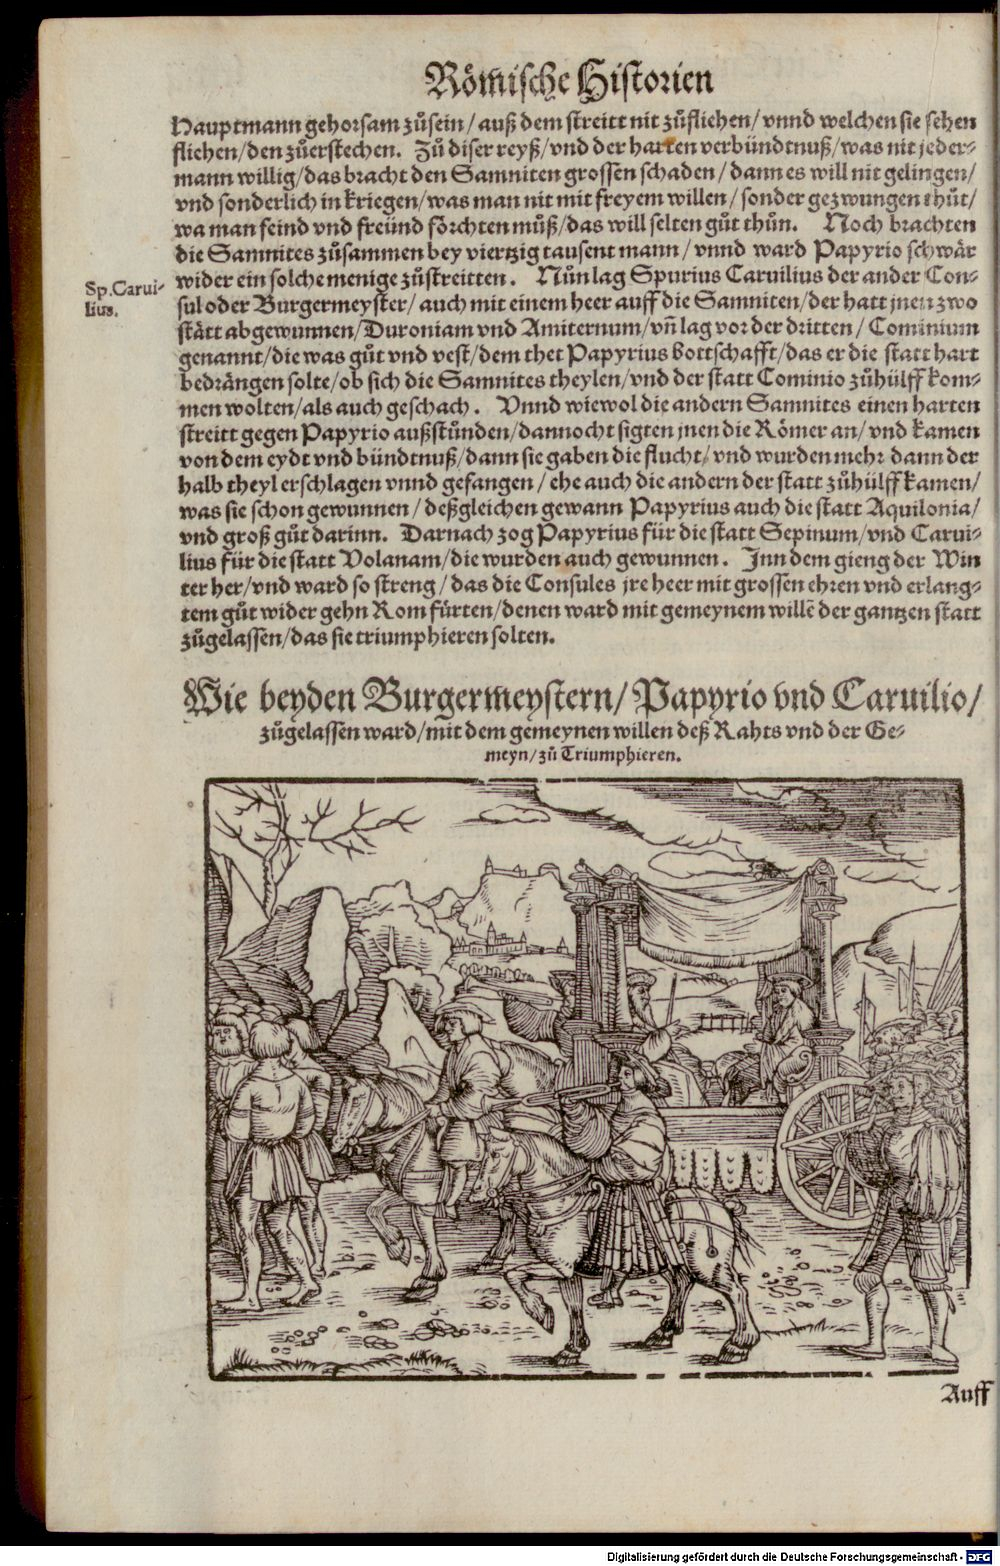 Römische Historien
Hauptmann gehorsam zůsein / auß dem streitt nit zůfliehen / vnnd welchen sie sehen
fliehen / den zůerstechen. Zů diser reyß / vnd der harten verbündtnuß / was nit jeder⸗
mann willig / das bracht den Samniten grossen schaden / dann es will nit gelingen /
vnd sonderlich in kriegen / was man nit mit freyem willen / sonder gezwungen thůt /
wa man feind vnd freünd förchten můß / das will selten gůt thůn. Noch brachten
die Samnites zůsammen bey viertzig tausent mann / vnnd ward Papyrio schwär
wider ein solche menige zůstreitten. Nůn lag Spurius Caruilius der ander Con⸗
Sp. Carui⸗
lius.
sul oder Burgermeyster / auch mit einem heer auff die Samniten / der hatt jnen zwo
stätt abgewunnen / Duroniam vnd Amiternum / vn̄ lag vor der dritten / Cominium
genannt / die was gůt vnd vest / dem thet Papyrius bottschafft / das er die statt hart
bedrängen solte / ob sich die Samnites theylen / vnd der statt Cominio zůhülff kom⸗
men wolten / als auch geschach. Vnnd wiewol die andern Samnites einen harten
streitt gegen Papyrio außstůnden / dannocht sigten jnen die Römer an / vnd kamen
von dem eydt vnd bündtnuß / dann sie gaben die flucht / vnd wurden mehr dann der
halb theyl erschlagen vnnd gefangen / ehe auch die andern der statt zůhülff kamen /
was sie schon gewunnen / deßgleichen gewann Papyrius auch die statt Aquilonia /
vnd groß gůt darinn. Darnach zog Papyrius für die statt Sepinum / vnd Carui⸗
lius für die statt Volanam / die wurden auch gewunnen. Inn dem gieng der Win
ter her / vnd ward so streng / das die Consules jre heer mit grossen ehren vnd erlang⸗
tem gůt wider gehn Rom fürten / denen ward mit gemeynem willē der gantzen statt
zůgelassen / das sie triumphieren solten.
Wie beyden Burgermeystern / Papyrio vnd Caruilio /
zůgelassen ward / mit dem gemeynen willen deß Rahts vnd der Ge⸗
meyn / zů Triumphieren.
Auff
Digitalisierung gefördert durch die Deutsche Forschungsgemeinschaft - DFG